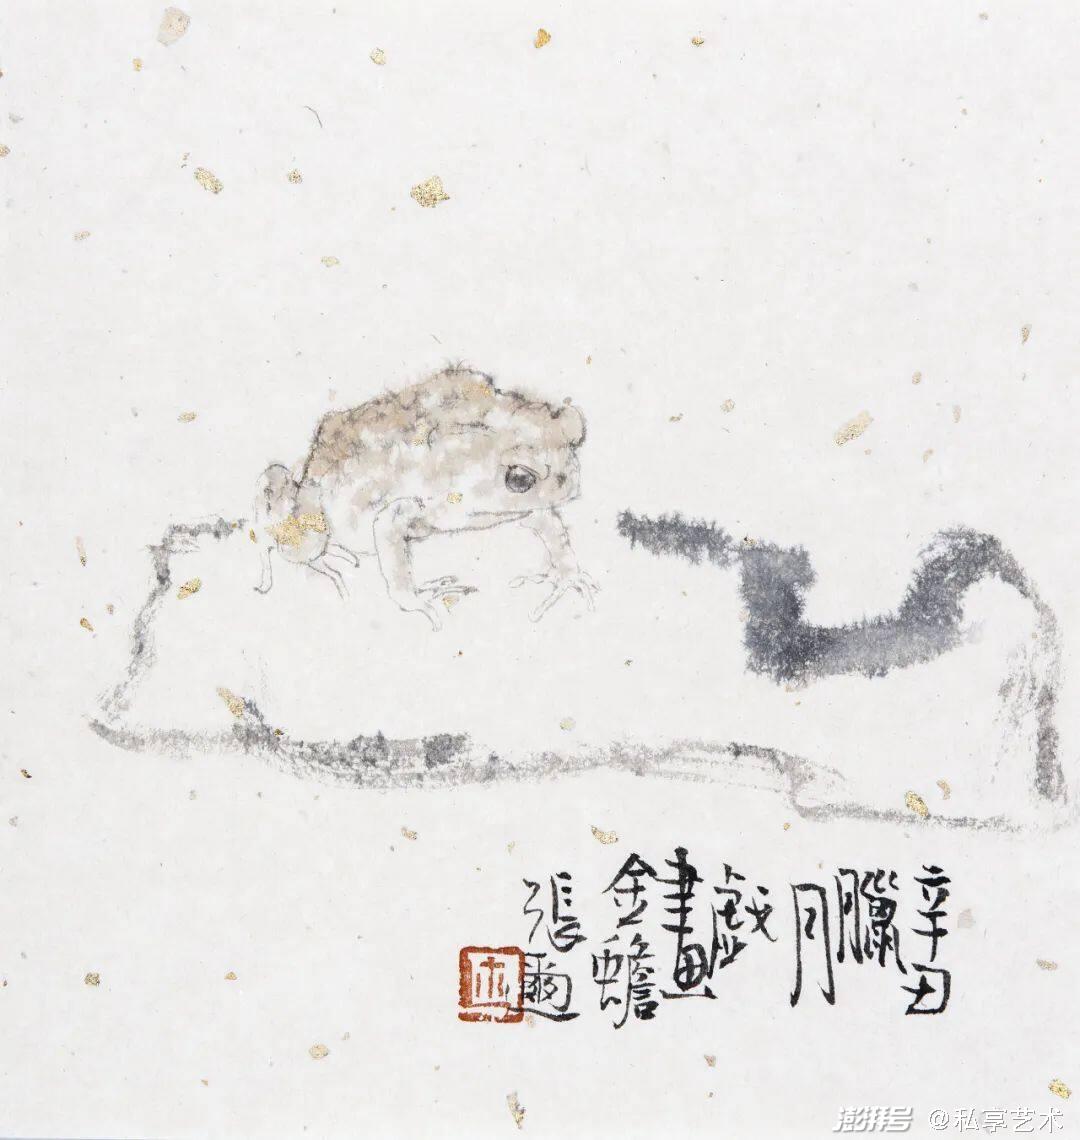 辛丑
臘月
戯畫
金蟾
張爾
澎湃号 @私享艺术